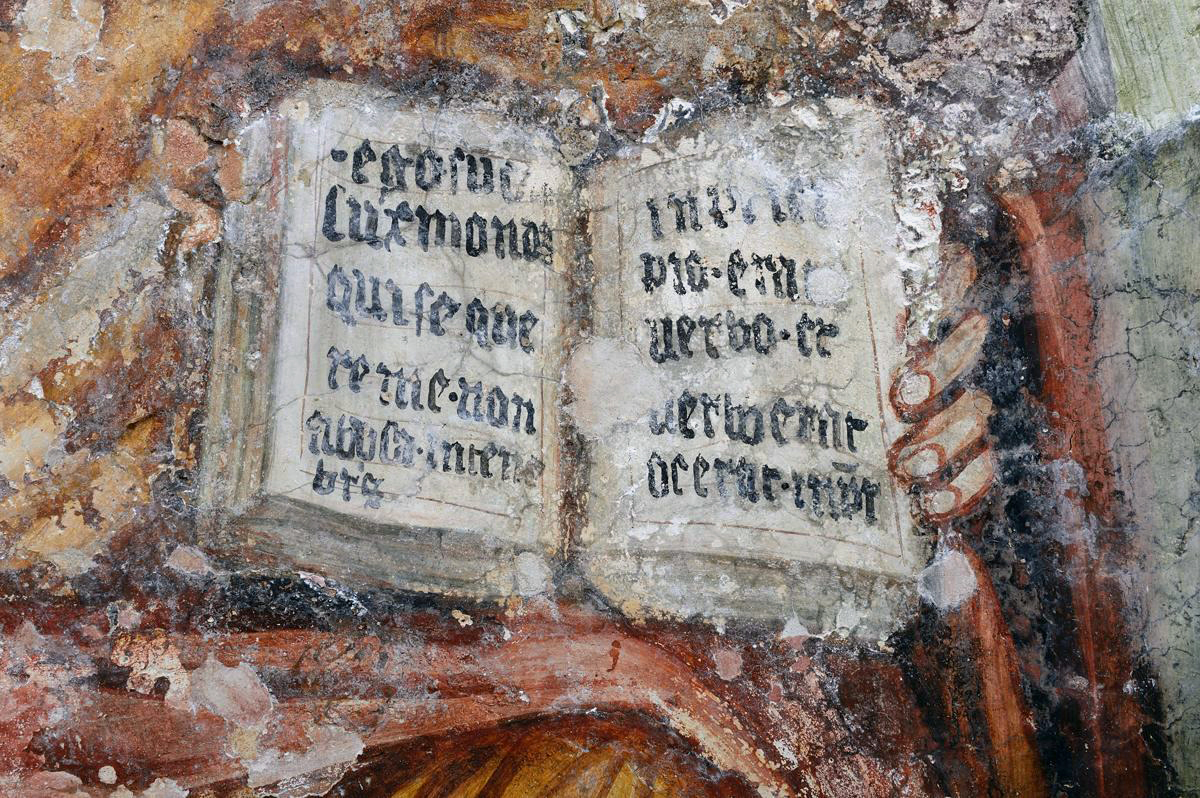 ·egosu
luxmondi
quiseque
reme·non
abula·intene
bris
inprici
pio·erat
uerbo·et
uerboerat